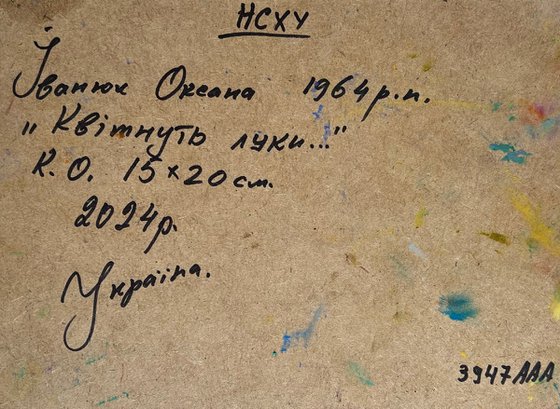 НСХУ
Іванюк Оксана 1964 р.н.
„Квітнуть луки..."
К.О. 15×20 см.
2024р.
Україна.
3947ААА